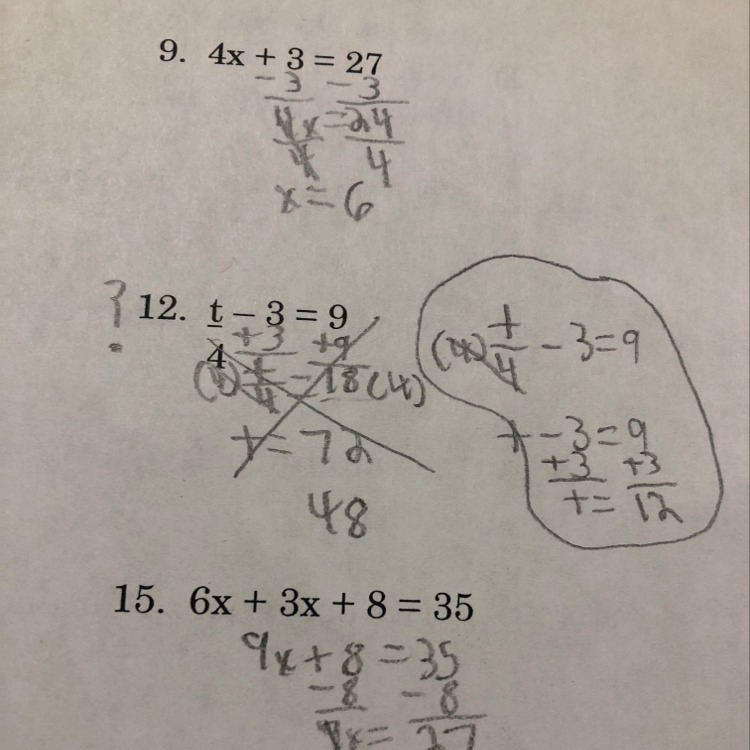 9. 4x + 3 = 27
- 3 - 3
4x = 24
4 4
x = 6
? 12. t – 3 = 9
4 + 3 + 9
(4) t = 18 (4)
4
t = 72
48
(4) t - 3 = 9
4
t - 3 = 9
+3 +3
t = 12
15. 6x + 3x + 8 = 35
9x + 8 = 35
- 8 - 8
9x = 27